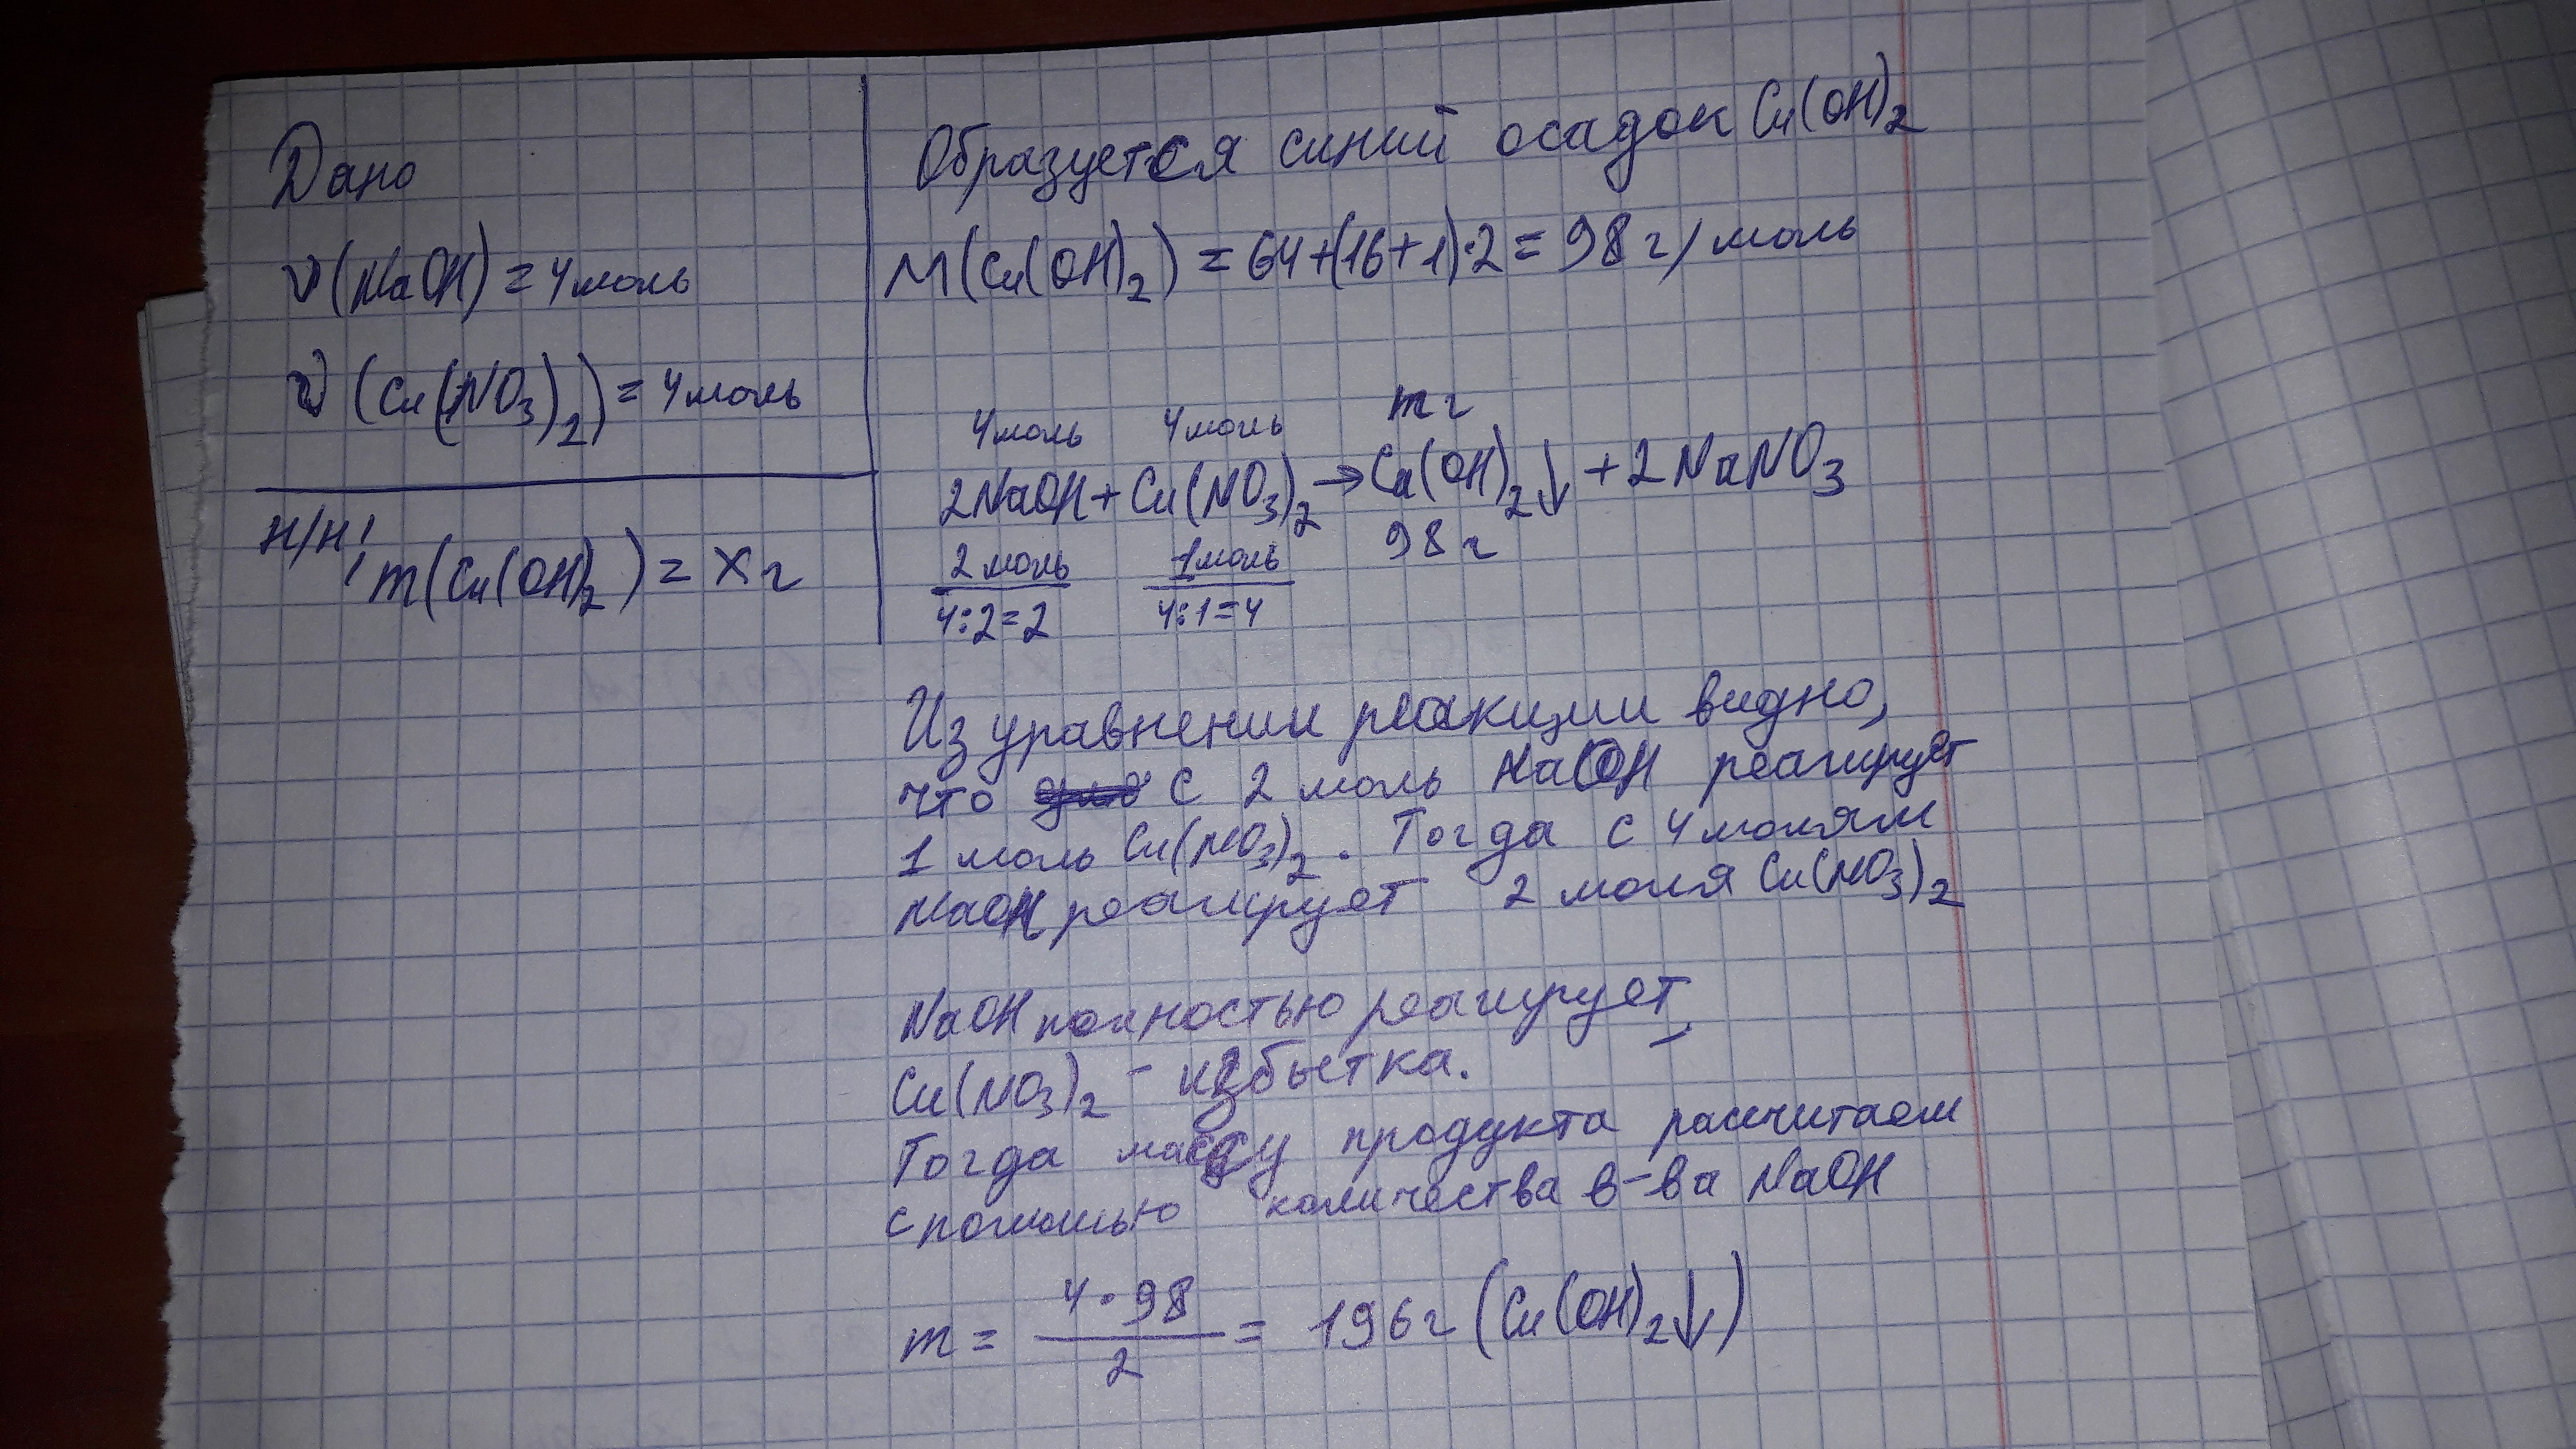 Дано
ν(NaOH) = 4 моль
ν(Cu(NO3)2) = 4 моль
Н/Н:
m(Cu(OH)2) = x г
Образуется синий осадок Cu(OH)2
M(Cu(OH)2) = 64+(16+1)·2 = 98 г/моль
4 моль 4 моль m г
2NaOH + Cu(NO3)2 → Cu(OH)2↓ + 2NaNO3
2 моль 1 моль 98 г
4:2=2 4:1=4
Из уравнении реакции видно,
что с 2 моль NaOH реагирует
1 моль Cu(NO3)2. Тогда с 4 молям
NaOH реагирует 2 моля Cu(NO3)2
NaOH полностью реагирует,
Cu(NO3)2 - избытка.
Тогда массу продукта рассчитаем
с помощью количества в-ва NaOH
m = 4·98/2 = 196 г (Cu(OH)2↓)